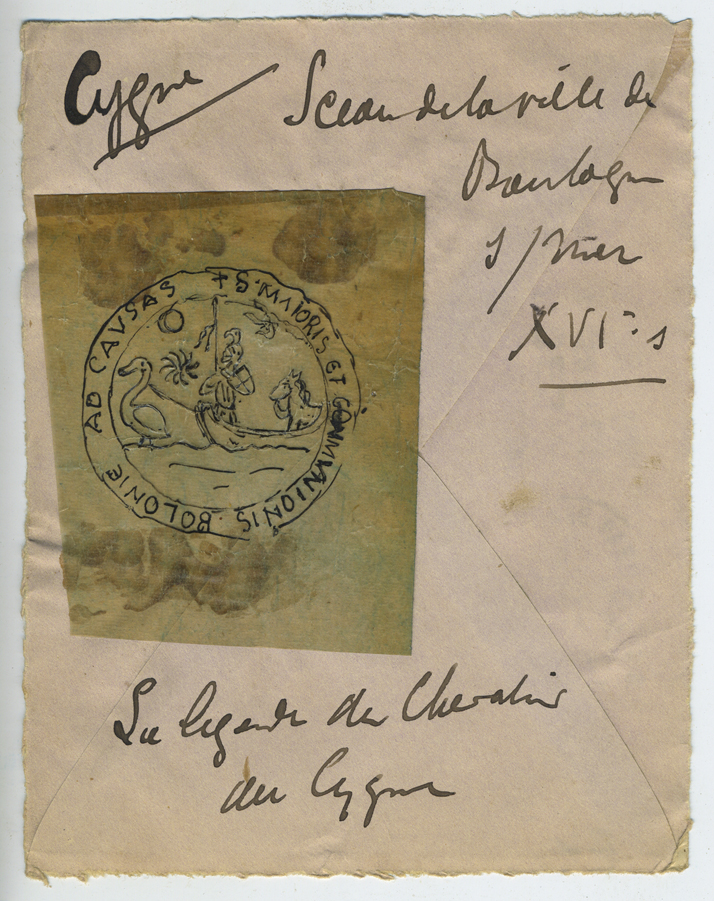 Cygne
Sceau de la ville de
Boulogne
s/mer
XVIe s
+ S· MAIORIS ET COMMVNIONIS · BOLONIE AD CAVSAS
La légende du Chevalier
du Cygne